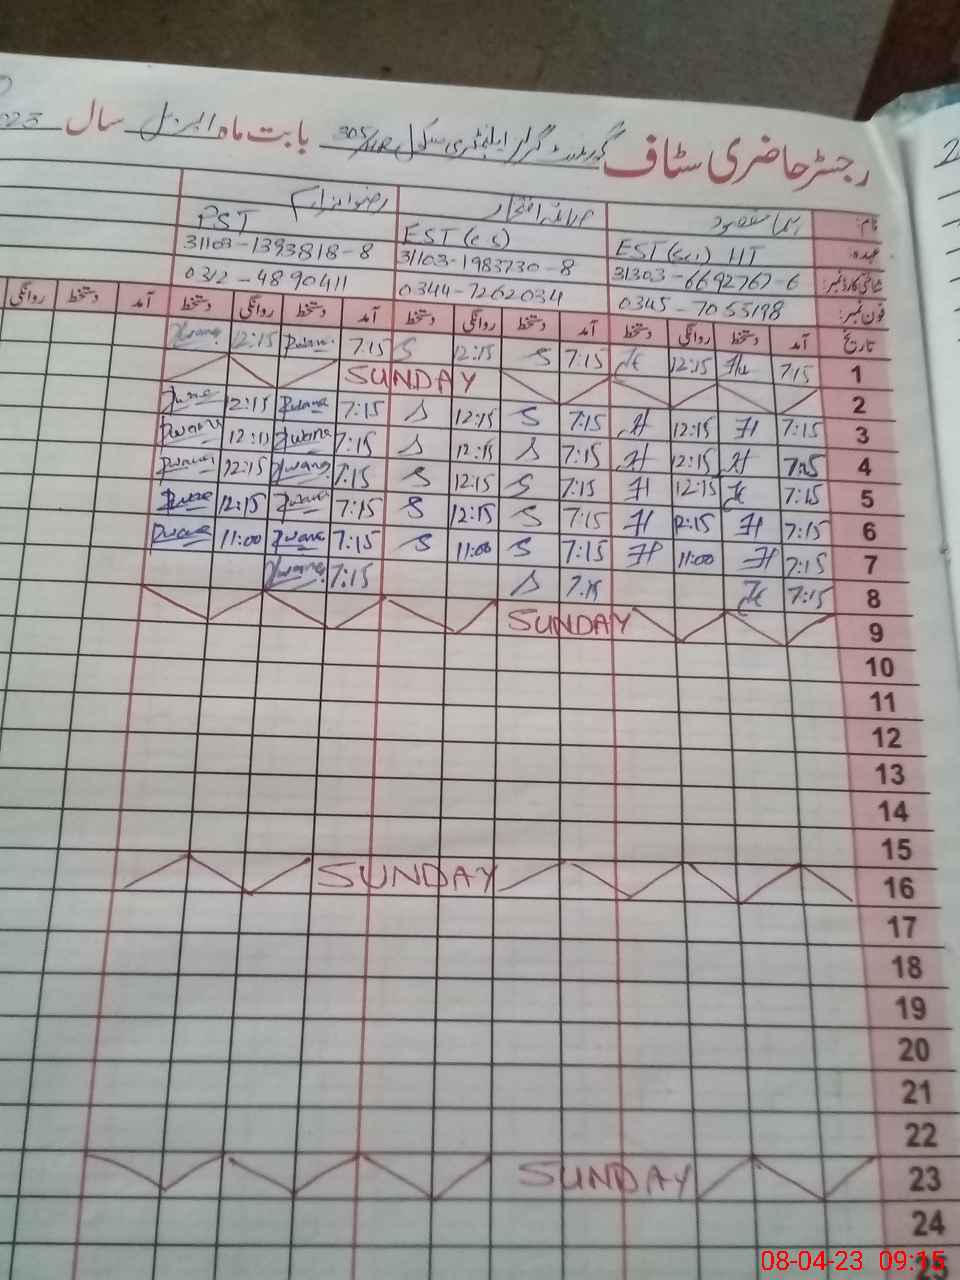 رجسٹر حاضری سٹاف گورنمنٹ گرلز ایلیمنٹری سکول 305/HR بابت ماہ اپریل سال 2023
نام: ہما مقصود
عہدہ: EST (Sci) HT EST (C S) PST
شناختی کارڈ نمبر: 31303-6692767-6 31103-1983730-8 31103-1393818-8
فون نمبر: 0345-7055198 0344-7262034 0312-4890411
تاریخ آمد دستخط روانگی دستخط آمد دستخط روانگی دستخط آمد دستخط روانگی دستخط آمد دستخط روانگی
1 7:15 12:15 7:15 S 12:15 S 7:15 12:15
2 SUNDAY
3 7:15 H 12:15 H 7:15 S 12:15 S 7:15 12:15
4 7:15 H 12:15 H 7:15 S 12:15 S 7:15 12:15
5 7:15 12:15 H 7:15 S 12:15 S 7:15 12:15
6 7:15 H 12:15 H 7:15 S 12:15 S 7:15 12:15
7 7:15 H 11:00 H 7:15 S 11:00 S 7:15 11:00
8 7:15 7:15 S 7:15
9 SUNDAY
10
11
12
13
14
15
16 SUNDAY
17
18
19
20
21
22
23 SUNDAY
24
25
08-04-23 09:15